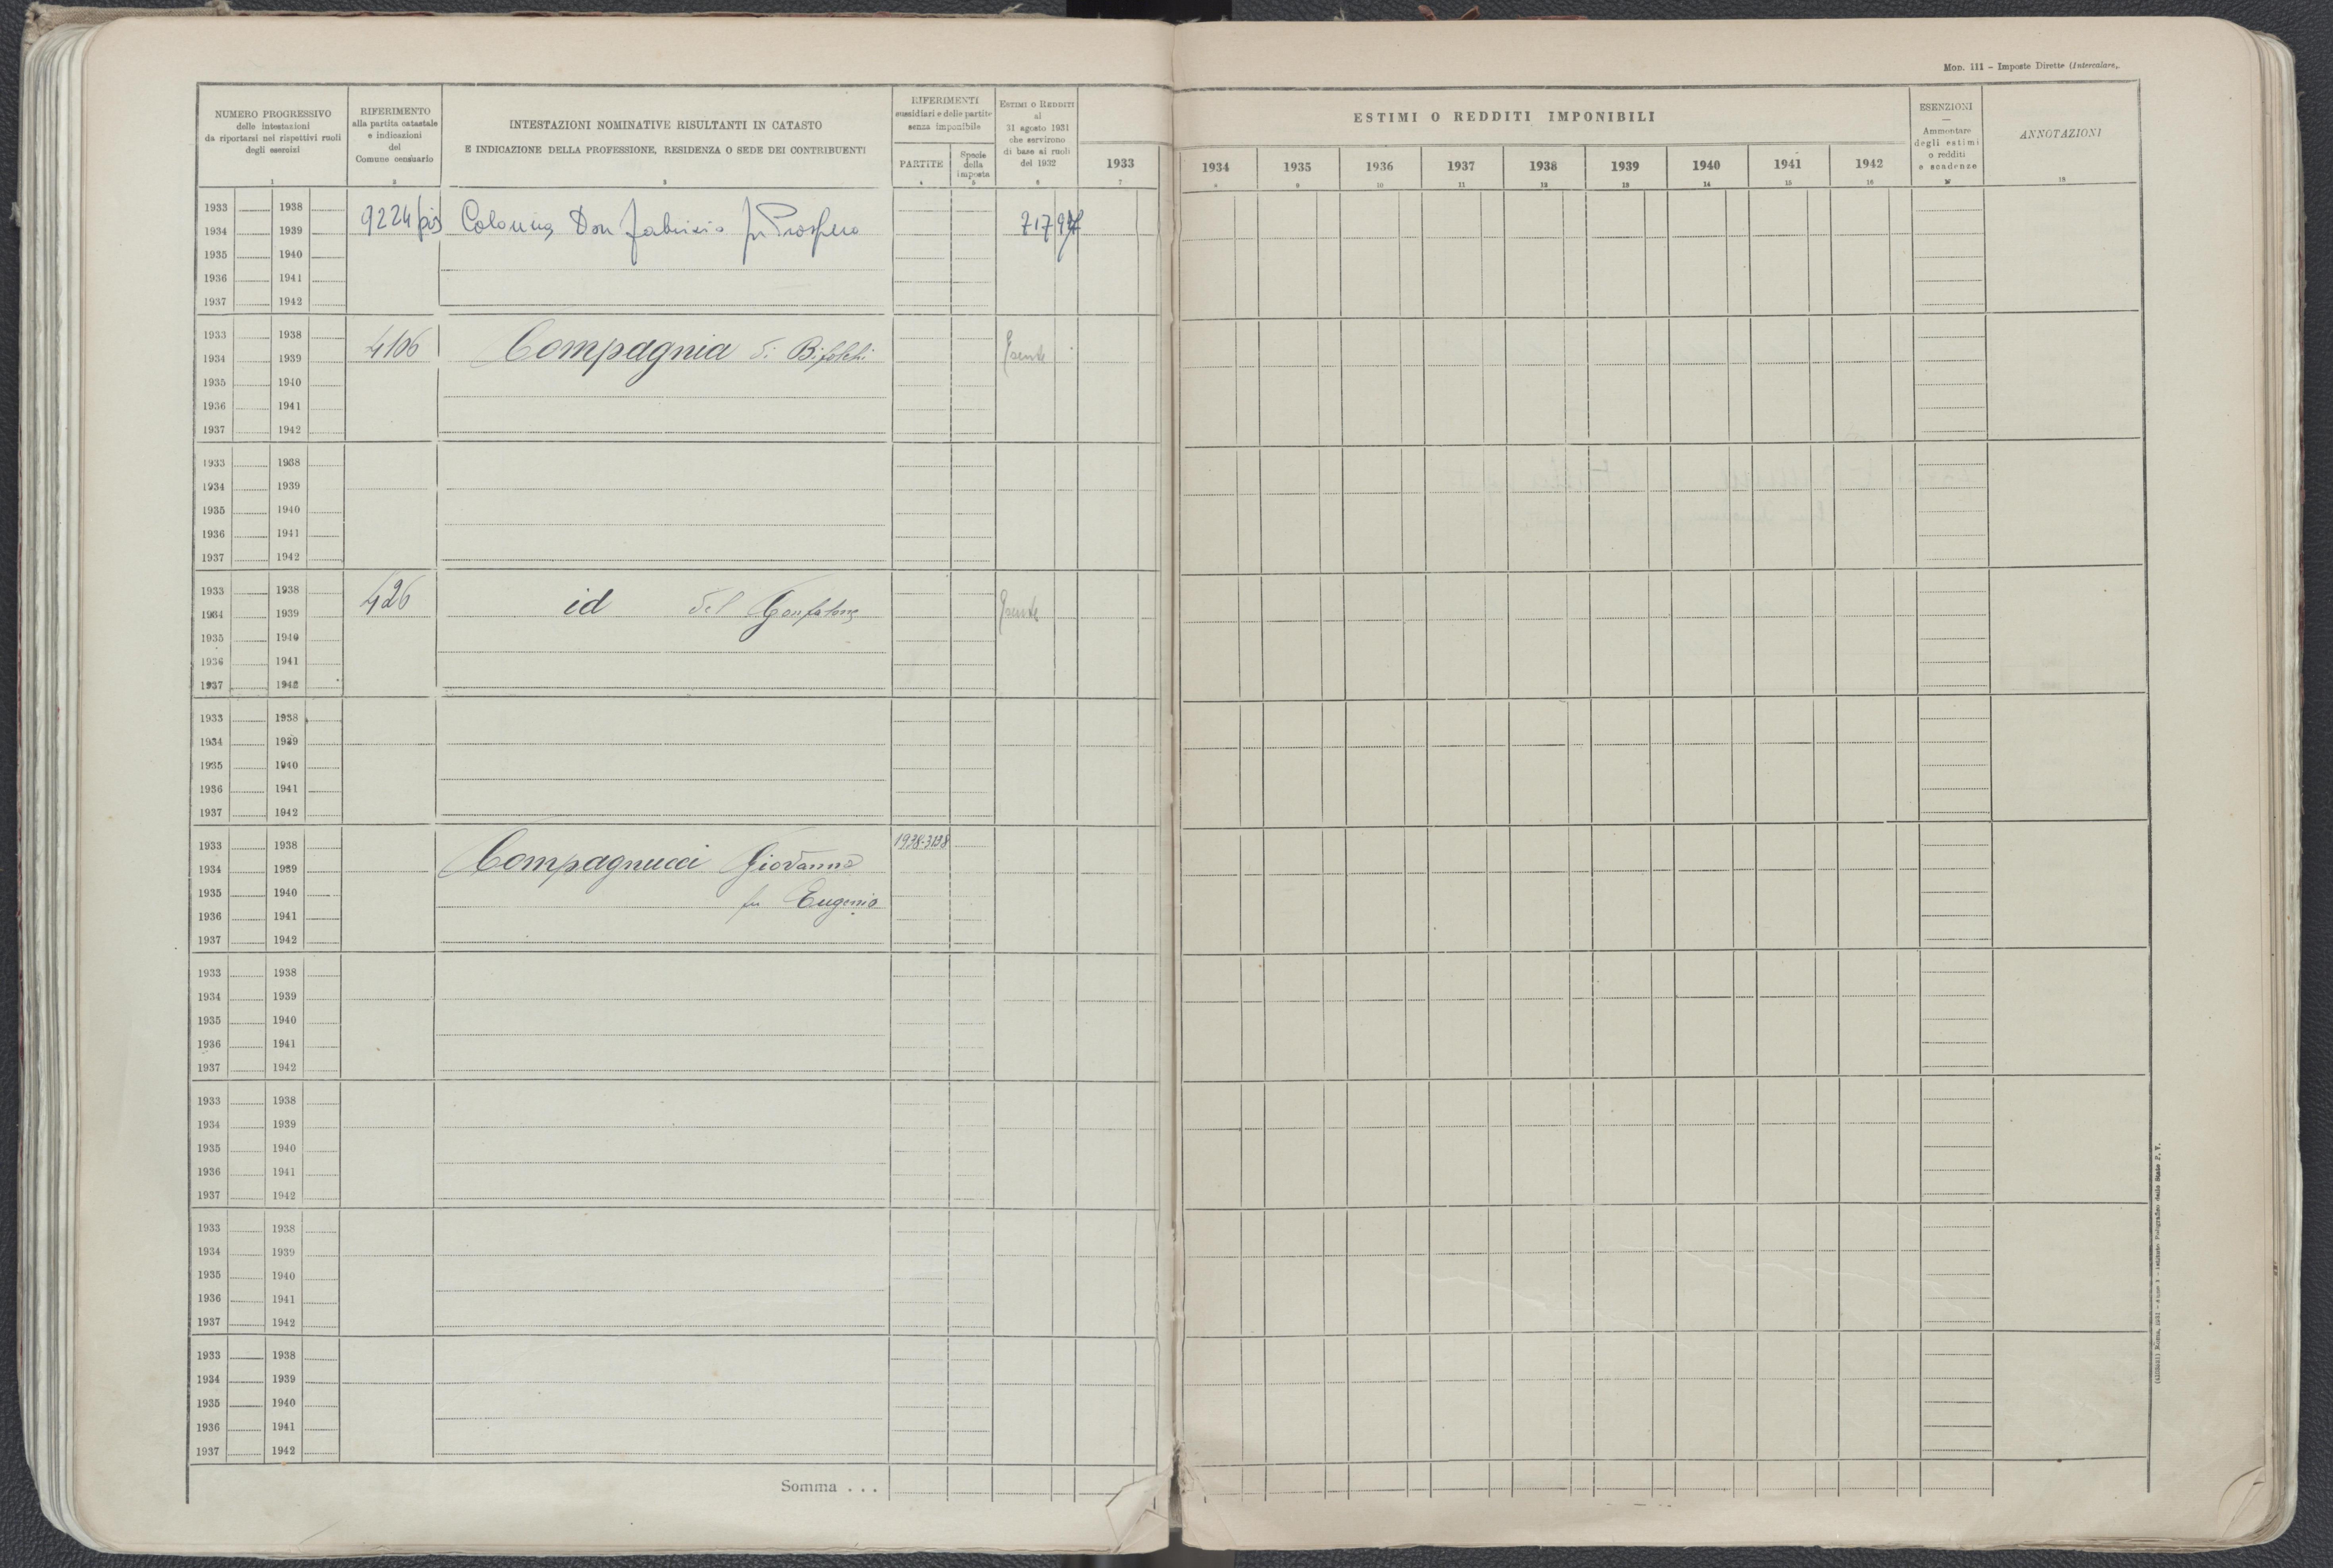 Mod. 111 – Imposte Dirette (Intercalare).
NUMERO PROGRESSIVO
delle intestazioni
da riportarsi nei rispettivi ruoli
degli esercizi
1
RIFERIMENTO
alla partita catastale
e indicazioni
del
Comune censuario
2
INTESTAZIONI NOMINATIVE RISULTANTI IN CATASTO
E INDICAZIONE DELLA PROFESSIONE, RESIDENZA O SEDE DEI CONTRIBUENTI
3
RIFERIMENTI
sussidiari e delle partite
senza imponibile
PARTITE
4
Specie
della
imposta
5
ESTIMI O REDDITI
al
31 agosto 1931
che servirono
di base ai ruoli
del 1932
6
1933
7
ESTIMI O REDDITI IMPONIBILI
1934 1935 1936 1937 1938 1939 1940 1941 1942
8 9 10 11 12 13 14 15 16
ESENZIONI
—
Ammontare
degli estimi
o redditi
e scadenze
17
ANNOTAZIONI
18
1933 1938
1934 1939 9224 bis Colonna Don Fabrizio fu Prospero 717
1935 1940
1936 1941
1937 1942
1933 1938
1934 1939 4106 Compagnia di Bifolchi Esente
1935 1940
1936 1941
1937 1942
1933 1938
1934 1939
1935 1940
1936 1941
1937 1942
1933 1938
1934 1939 426 id del Gonfalone Esente
1935 1940
1936 1941
1937 1942
1933 1938
1934 1939
1935 1940
1936 1941
1937 1942
1933 1938 1938-3138
1934 1939 Compagnucci Giovanni
1935 1940 fu Eugenio
1936 1941
1937 1942
1933 1938
1934 1939
1935 1940
1936 1941
1937 1942
1933 1938
1934 1939
1935 1940
1936 1941
1937 1942
1933 1938
1934 1939
1935 1940
1936 1941
1937 1942
1933 1938
1934 1939
1935 1940
1936 1941
1937 1942
Somma . . .
Roma, 1931 - Istituto Poligrafico dello Stato P. V.